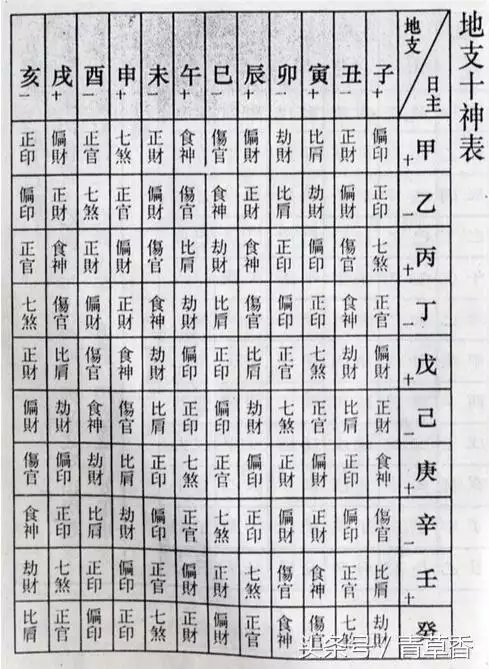 地支十神表
地支 日主 子+ 丑- 寅+ 卯- 辰+ 巳- 午+ 未- 申+ 酉- 戌+ 亥-
甲+ 偏印 正財 比肩 劫財 偏財 傷官 食神 正財 七煞 正官 偏財 正印
乙- 正印 偏財 劫財 比肩 正財 食神 傷官 偏財 正官 七煞 正財 偏印
丙+ 七煞 傷官 偏印 正印 食神 劫財 比肩 傷官 偏財 正財 食神 正官
丁- 正官 食神 正印 偏印 傷官 比肩 劫財 食神 正財 偏財 傷官 七煞
戊+ 偏財 劫財 七煞 正官 比肩 正印 偏印 劫財 食神 傷官 比肩 正財
己- 正財 比肩 正官 七煞 劫財 偏印 正印 比肩 傷官 食神 劫財 偏財
庚+ 食神 正印 偏財 正財 偏印 正官 七煞 正印 比肩 劫財 偏印 傷官
辛- 傷官 偏印 正財 偏財 正印 七煞 正官 偏印 劫財 比肩 正印 食神
壬+ 比肩 正官 食神 傷官 七煞 正財 偏財 正官 偏印 正印 七煞 劫財
癸 劫財 七煞 傷官 食神 正官 偏財 正財 七煞 正印 偏印 正官 比肩
头条号 / 青草香